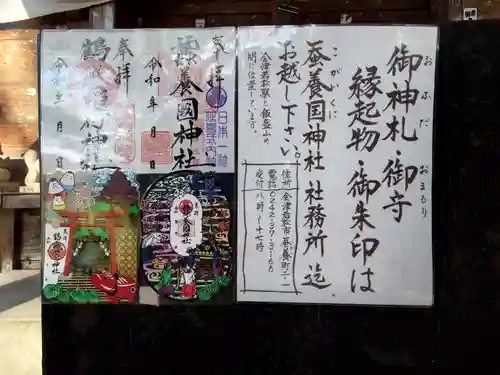 御神札・御守
おふだ
おまもり
縁起物・御朱印は
蚕養国神社 社務所 迄
こがいくに
お越し下さい。
会津若松駅と飯盛山の
間に位置しています。
住所 会津若松市蚕養町二-一
電話 0242-37-3166
受付 八時〜十七時
奉拝
蚕養國神社
令和 年 月 日
日本一社
延喜式内
奉拝
鶴峰稲荷神社
令和 年 月 日